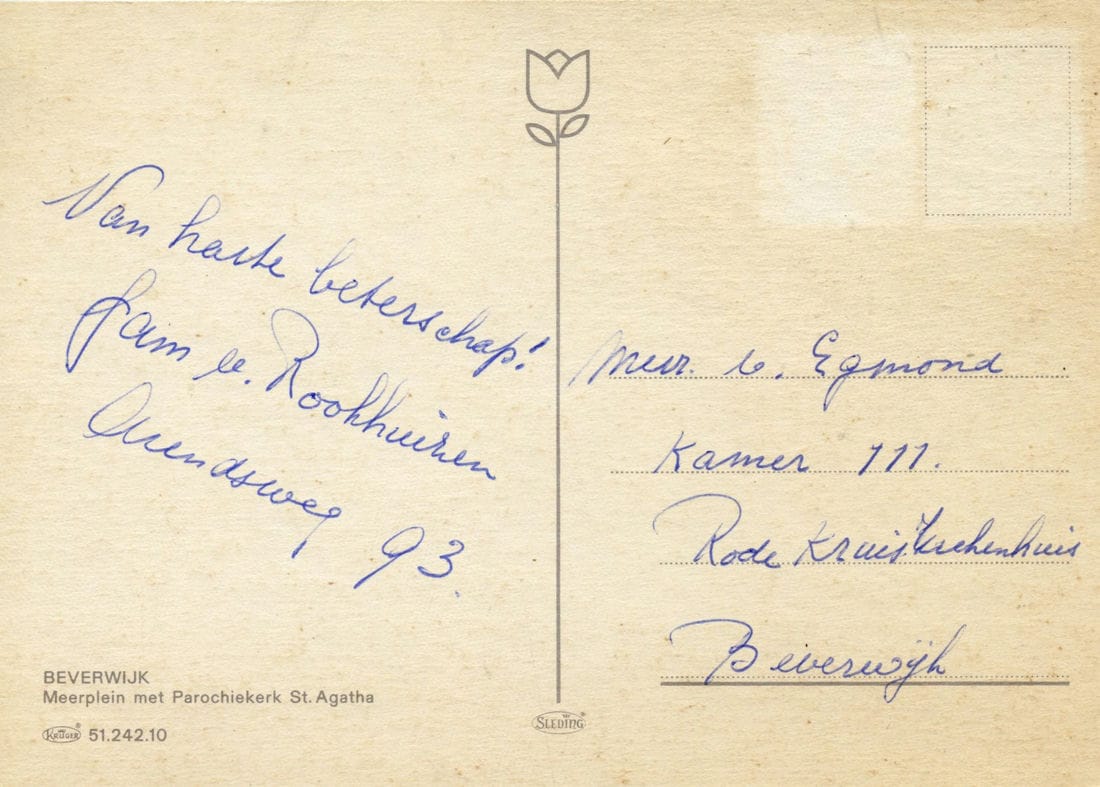 Van harte beterschap!
fam v. Rookhuizen
Arendsweg 93.
Meer. v. Egmond
Kamer 111.
Rode Kruis
Beverwijk
BEVERWIJK
Meerplein met Parochiekerk St. Agatha
KRÜGER 51.242.10
SLEDING